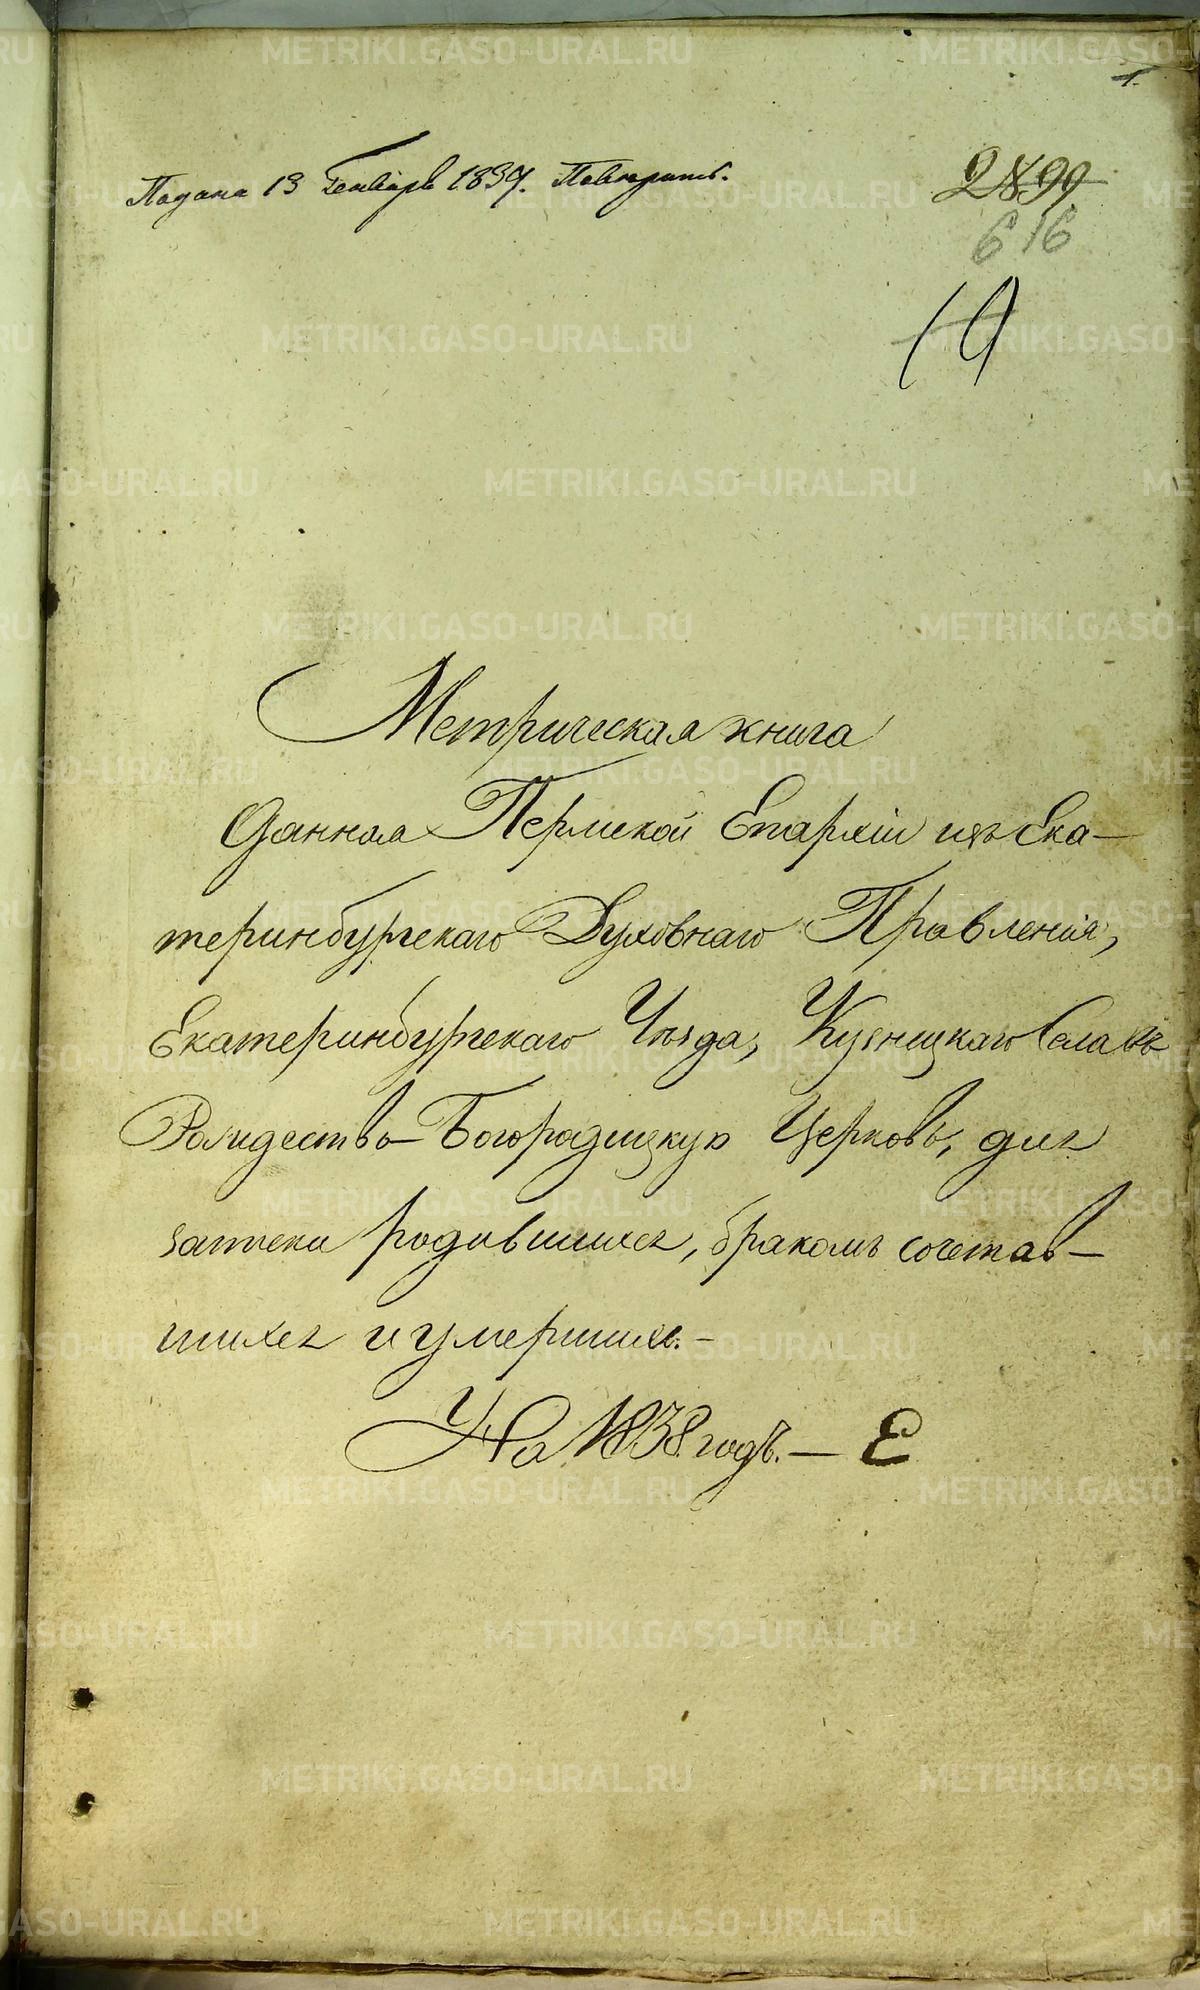 1.
Подана 13 Генваря 1839. Повѣрить.
2899
616
19
Метрическая книга
данная Пермской Епархіи изъ Ека-
теринбургскаго Духовнаго Правленія,
Екатеринбургскаго Уѣзда, Кузнецкаго Села въ
Рождество-Богородицкую Церковь, для
записки родившихся, бракомъ сочетав-
шихся и умершихъ.-
На 1838 годъ.- Е